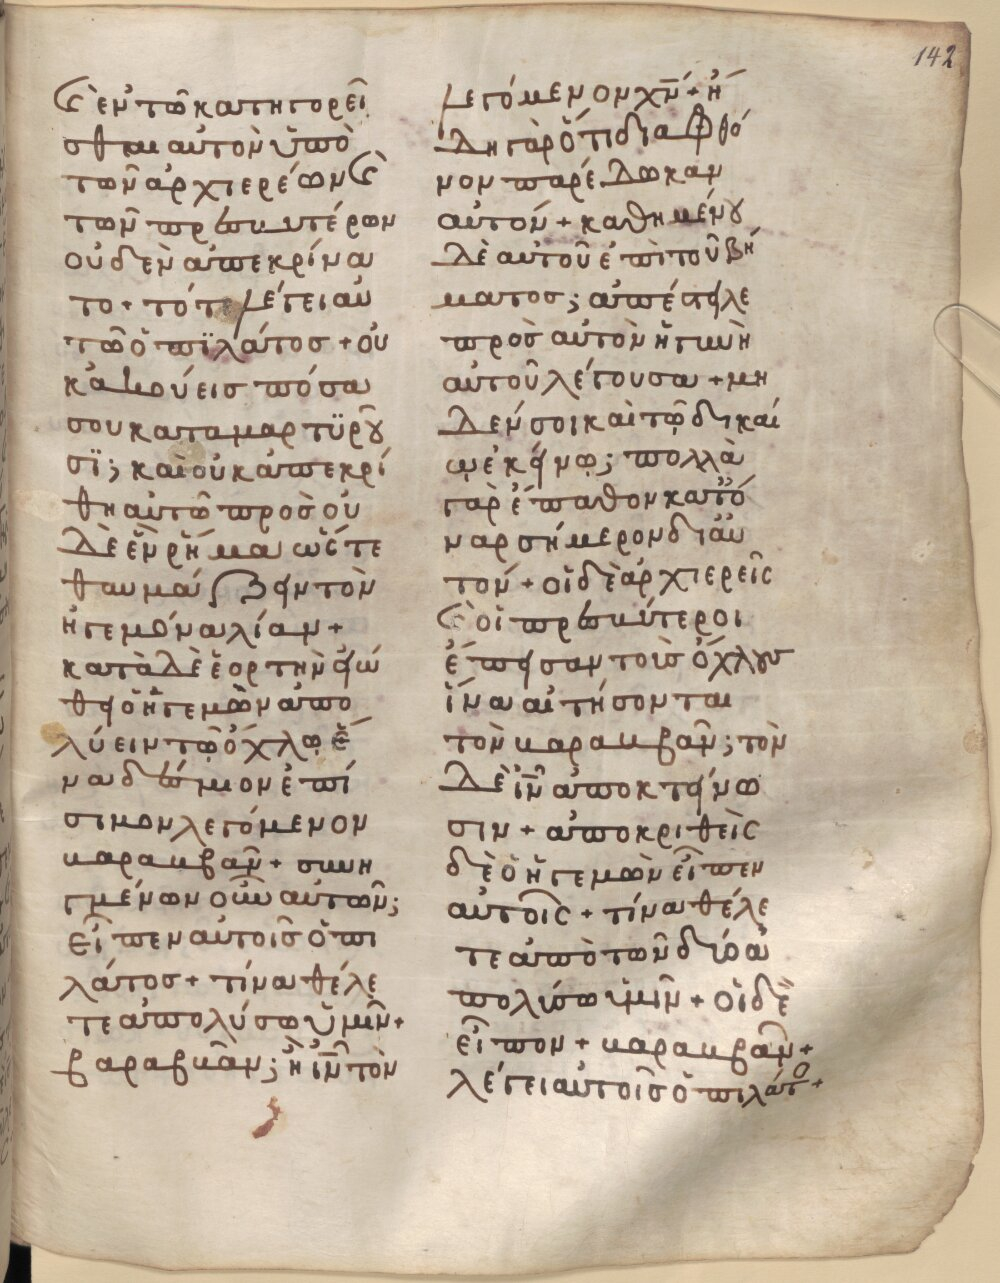 142
Ϛ ἐν τῶ κατηγορεῖ
σθαι αὐτὸν ὑπὸ
τῶν ἀρχιερέων Ϛ
τῶν πρεσβυτέρων
οὐδὲν ἀπεκρίνα
το + τότε λέγει αὐ
τῶ ὁ πϊλάτος + οὐ
κ ἀκούεις πόσα
σου καταμαρτϋροῦ
σϊ; καὶ οὐκ ἀπεκρί
θη αὐτῶ προς οὐ
δὲ ἓν ρῆμα ὥστε
θαυμάζειν τὸν
ἡγεμόνα λίαν +
κατὰ δὲ ἑορτὴν εἰώ
θει ὁ ἡγεμὼν ἀπο
λύειν τῷ ὄχλῳ ἕ
να δέσμιον ἐπί
σιμον λεγόμενον
βαραββᾶν + συνη
γμένων οὖν αὐτῶν;
εἶπεν αὐτοῖς ὁ πι
λάτος + τίνα θέλε
τε ἀπολύσω ὑμῖν +
βαραββᾶν; ἢ ιν̅ τὸν
λεγόμενον χν̅ + ἤ
δη γὰρ ὅτι διαφθό
νον παρέδωκαν
αὐτόν + καθημένου
δὲ αὐτοῦ ἐπὶ τοῦ βή
ματος; ἀπέστειλε
πρὸς αὐτὸν ἡ γυνὴ
αὐτοῦ λέγουσα + μη
δέν σοι καὶ τῷ δικαί
ῳ ἐκείνῳ; πολλὰ
γὰρ ἔπαθον κατό
ναρ σήμερον δι αὐ
τόν + οἱ δὲ ἀρχιερεῖς
Ϛ οἱ πρεσβύτεροι
ἔπεισαν τοὺς ὄχλους
ἵνα αἰτήσονται
τὸν βαραββᾶν; τὸν
δὲ ιν̅ ἀποκτείνω
σιν + ἀποκριθεὶς
δὲ ὁ ἡγεμὼν εἶπεν
αὐτοῖς + τίνα θέλε
τε ἀπὸ τῶν δύο ἀ
πολύσω ὑμῖν + οἱ δὲ
εἶπον + βαραββᾶν +
λέγει αὐτοῖς ὁ πιλάτο +